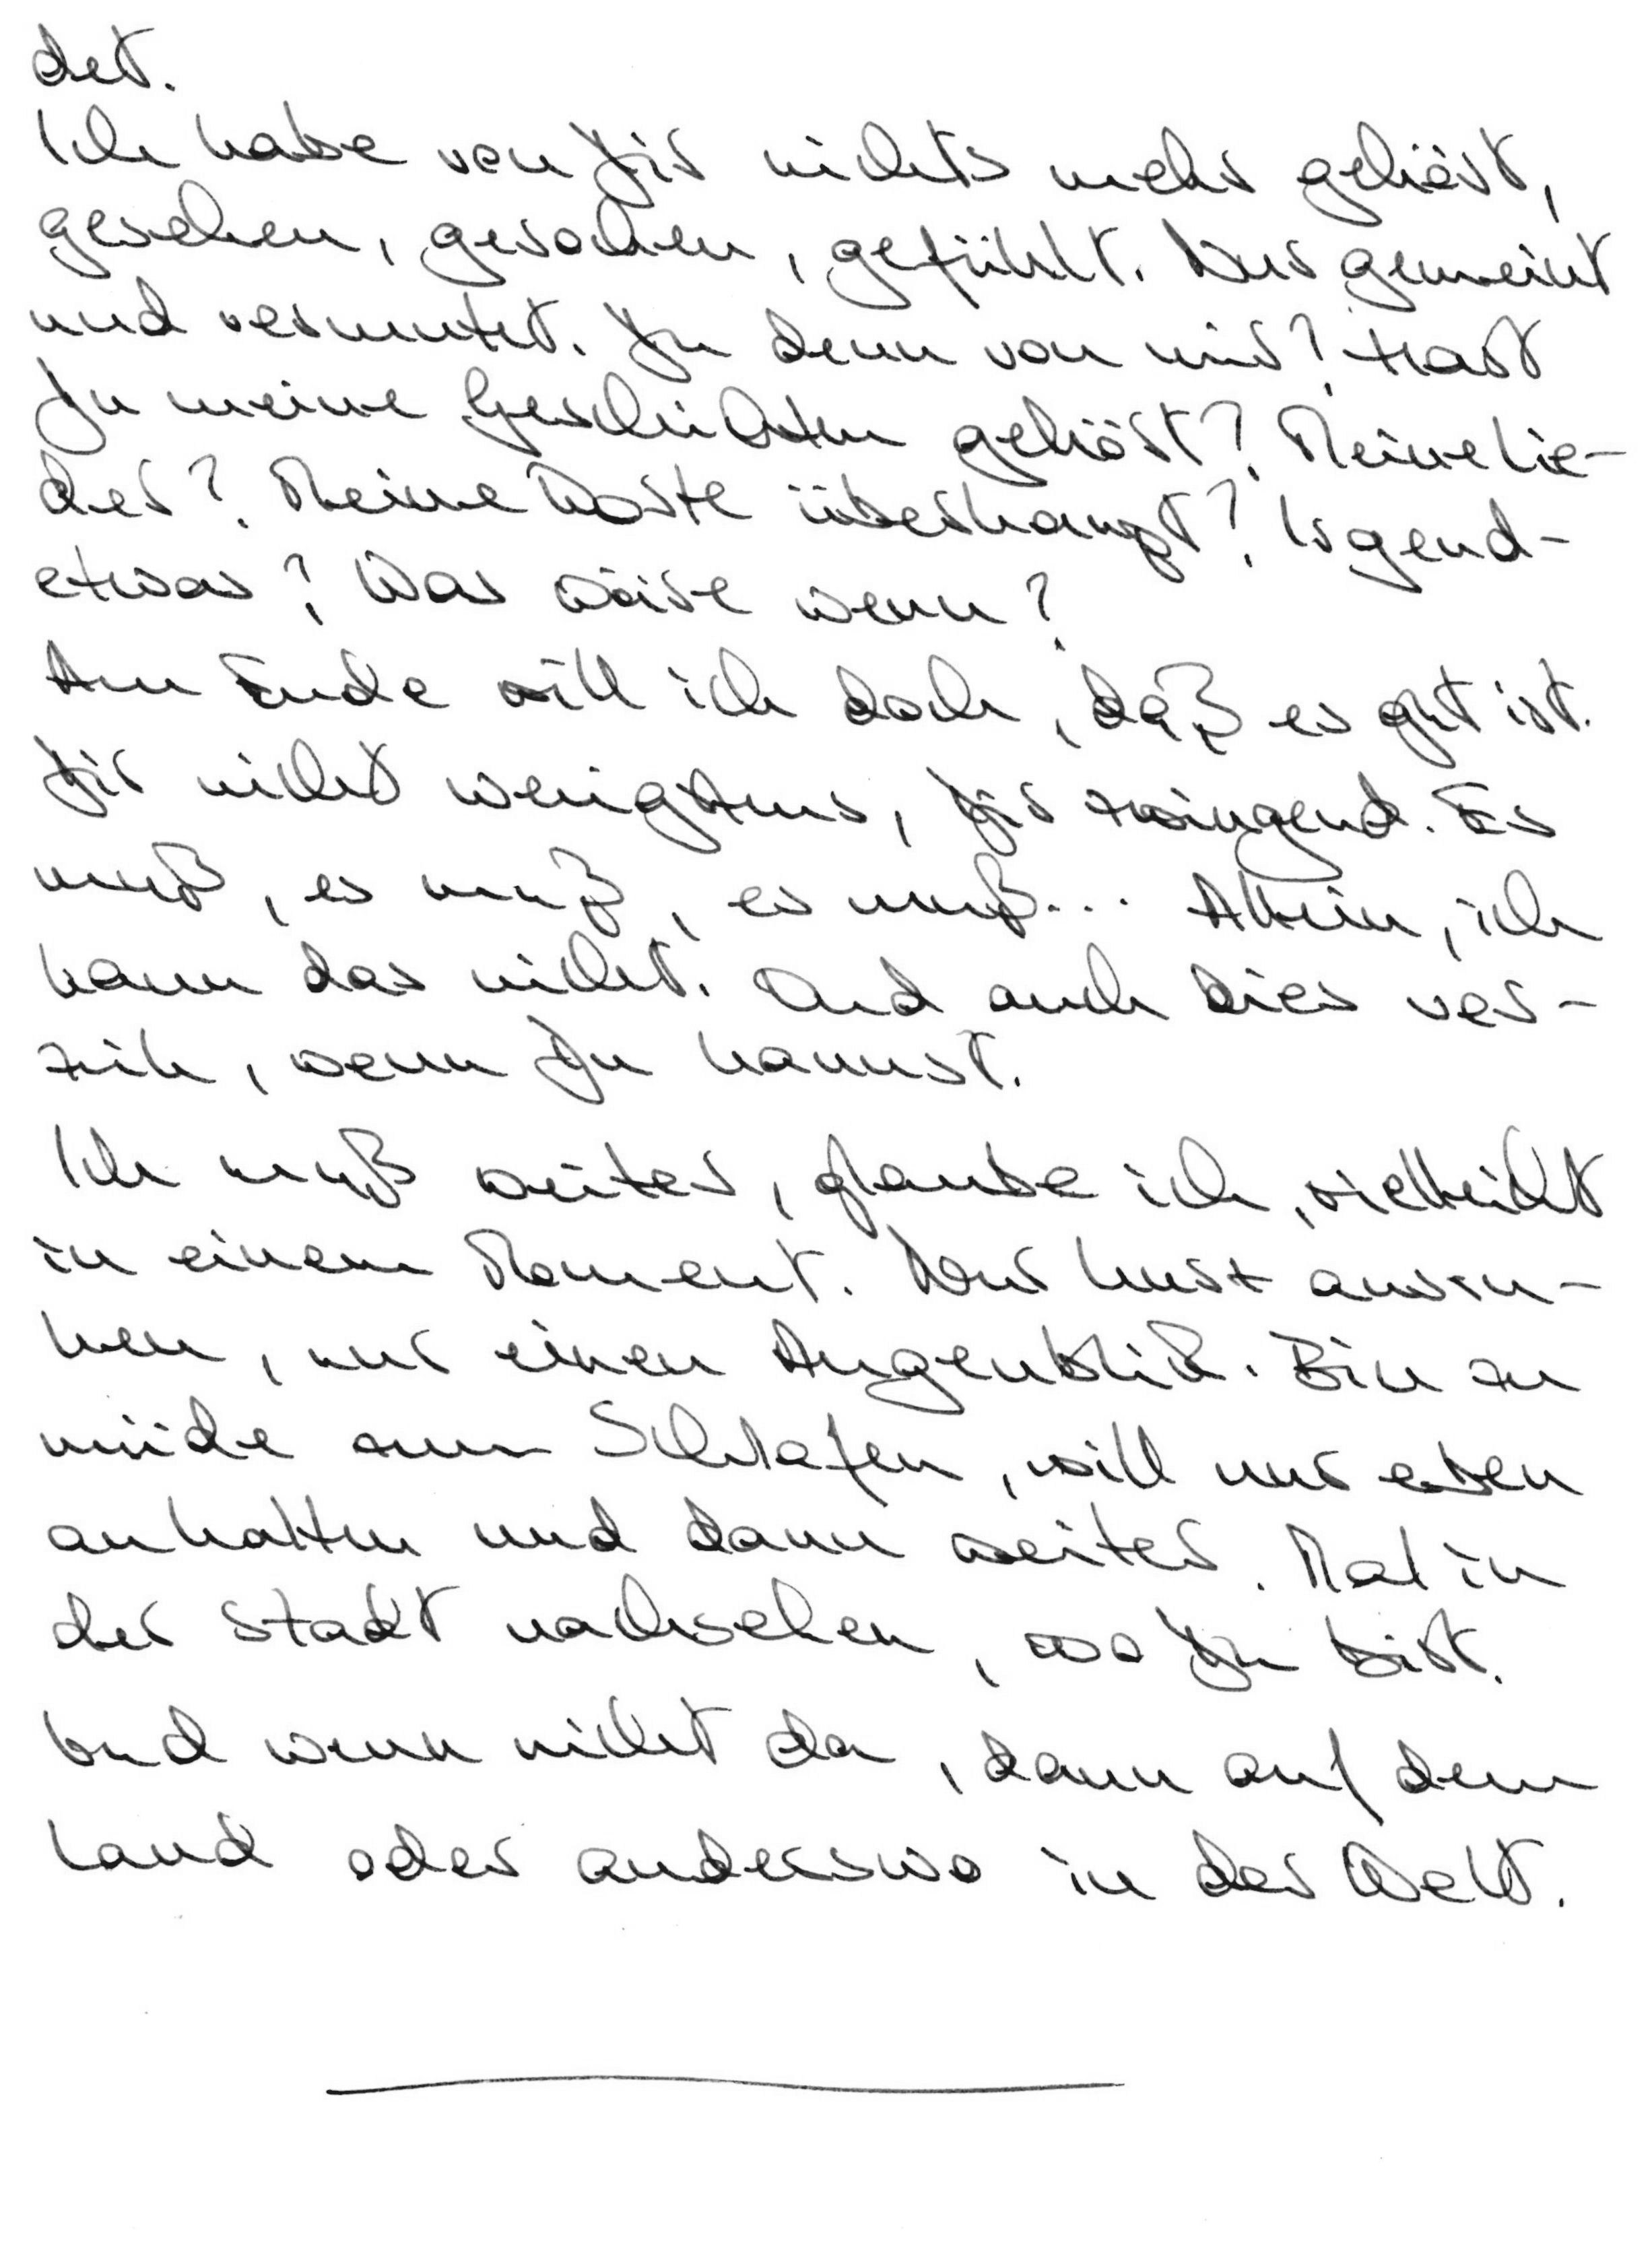 det.
Ich habe von Dir nichts mehr gehört,
gesehen, gerochen, gefühlt. Nur gemeint
und vermutet. Du denn von mir? Hast
Du meine Geschichten gehört? Meine Lie-
der? Meine Worte überhaupt? Irgend-
etwas? Was wäre wenn?
Am Ende will ich doch, daß es gut ist.
Dir nicht wenigstens, Dir zwingend. Es
muß, es muß, es muß... Allein, ich
kann das nicht. Und auch dies ver-
zeih, wenn Du kannst.
Ich muß weiter, glaube ich, vielleicht
in einem Moment. Nur kurz ausru-
hen, nur einen Augenblick. Bin zu
müde zum Schlafen, will nur eben
anhalten und dann weiter. Mal in
der Stadt nachsehen, wo Du bist.
Und wenn nicht da, dann auf dem
Land oder anderswo in der Welt.